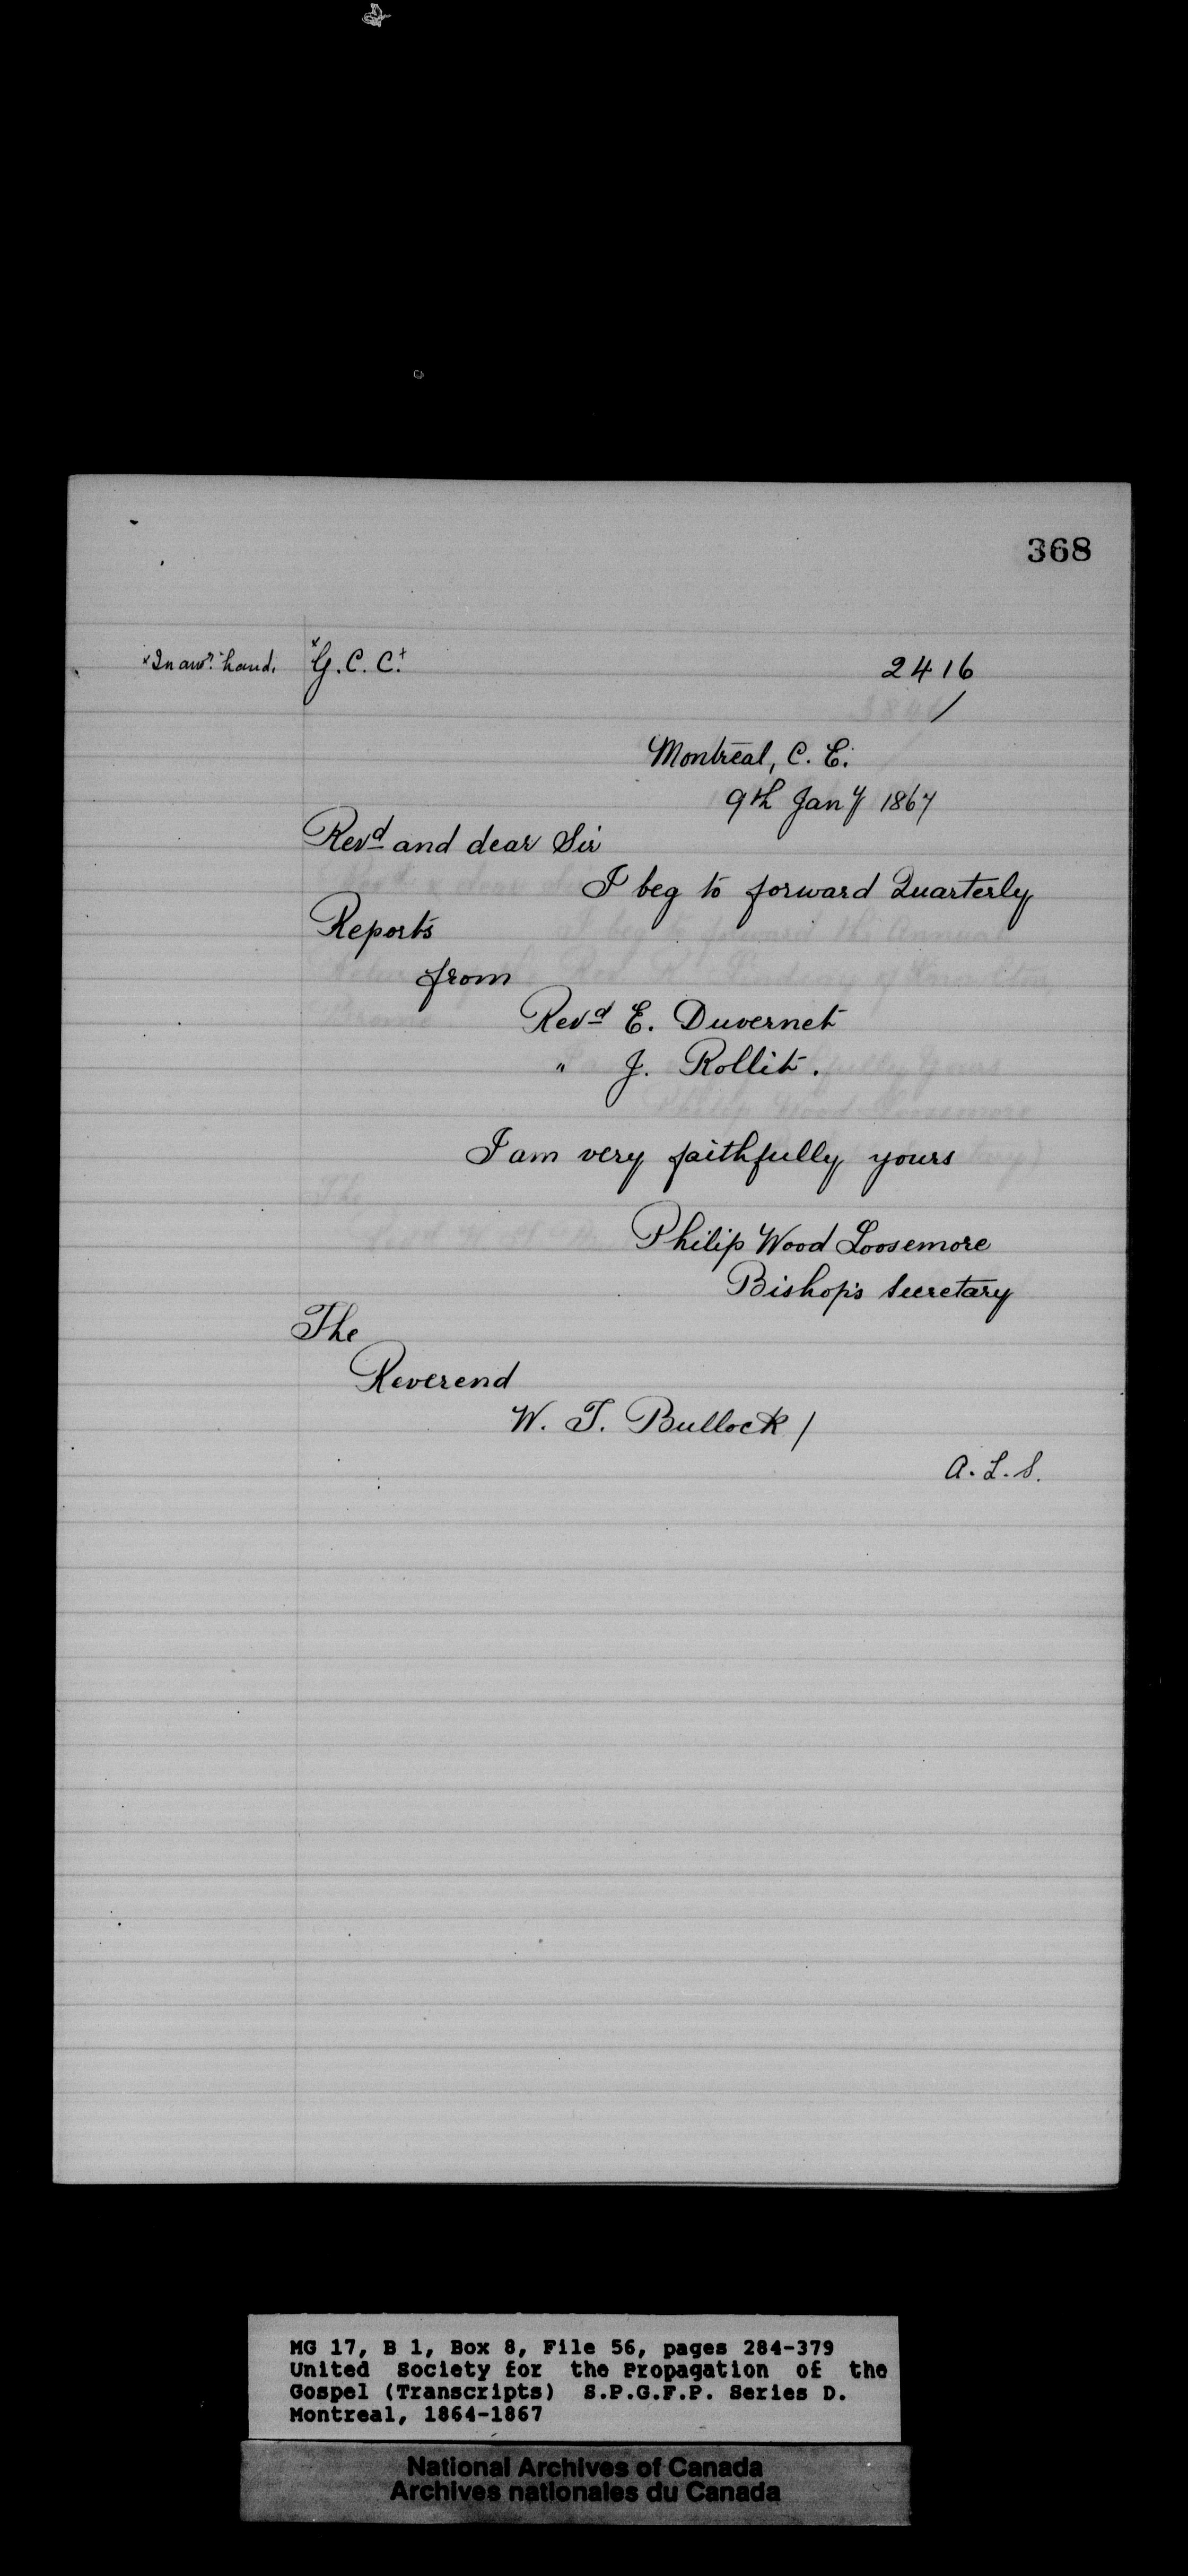 368
x In anor. hand. x G. C. C. x 2416
/
Montreal, C. E.
9th Jany 1867
Revd and dear Sir
I beg to forward Quarterly
Reports
from
Revd E. Duvernet
" J. Rollit.
I am very faithfully yours
Philip Wood Loosemore
Bishop's Secretary
The
Reverend
W. T. Bullock /
A. L. S.
MG 17, B 1, Box 8, File 56, pages 284-379
United Society for the Propagation of the
Gospel (Transcripts) S.P.G.F.P. Series D.
Montreal, 1864-1867
National Archives of Canada
Archives nationales du Canada